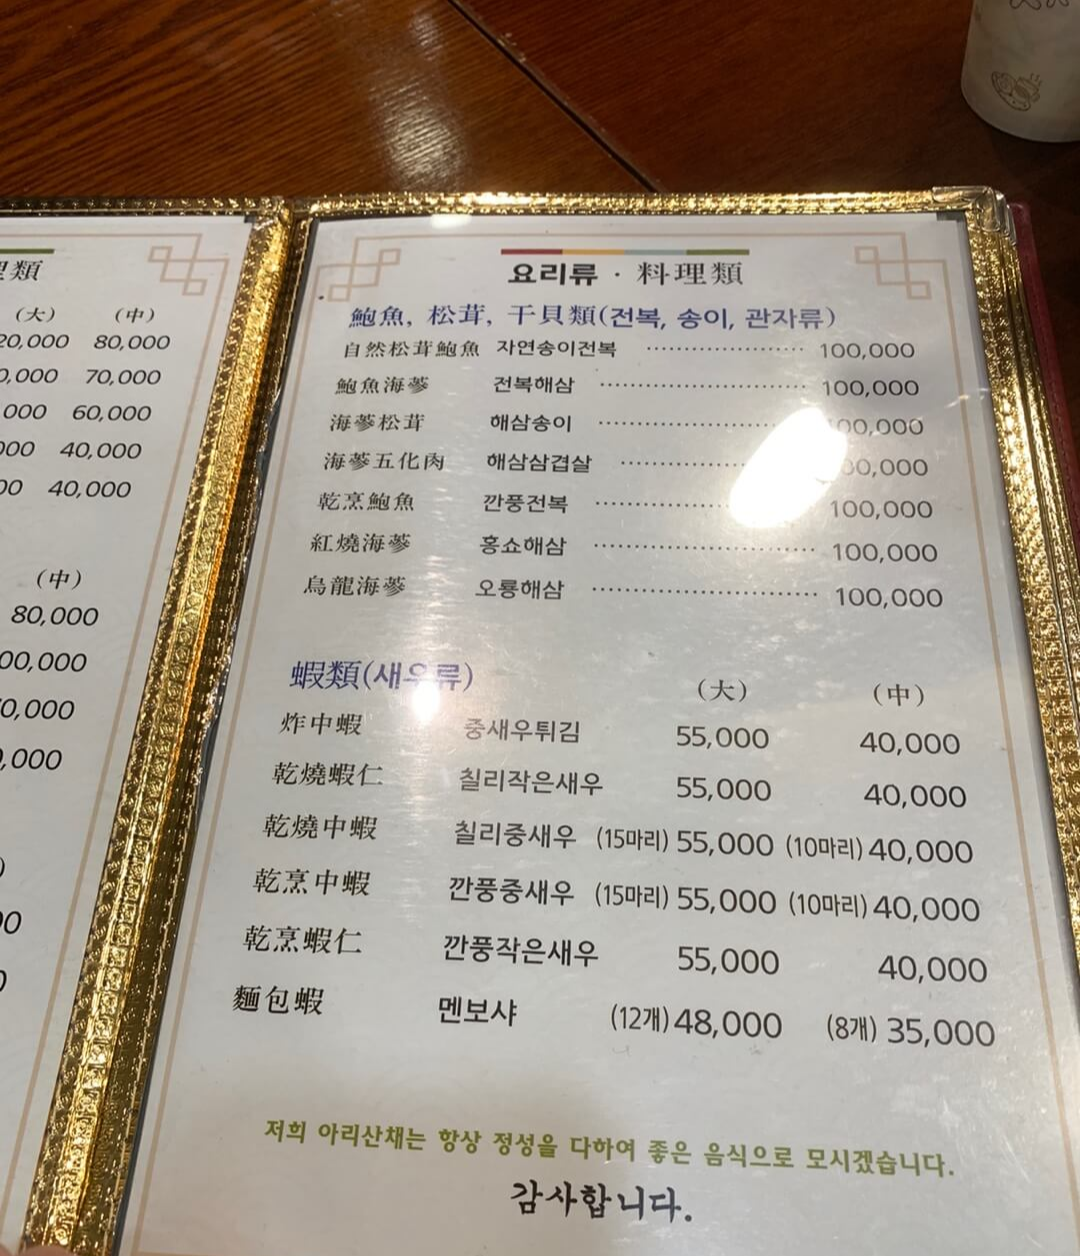 類
(大) (中)
20,000 80,000
0,000 70,000
000 60,000
00 40,000
00 40,000
(中)
80,000
00,000
0,000
0,000
00
요리류 · 料理類
鮑魚, 松茸, 干貝類(전복, 송이, 관자류)
自然松茸鮑魚 자연송이전복 100,000
鮑魚海蔘 전복해삼 100,000
海蔘松茸 해삼송이 00,000
海蔘五化肉 해삼삼겹살 00,000
乾烹鮑魚 깐풍전복 100,000
紅燒海蔘 홍쇼해삼 100,000
烏龍海蔘 오룡해삼 100,000
蝦類(새우류) (大) (中)
炸中蝦 중새우튀김 55,000 40,000
乾燒蝦仁 칠리작은새우 55,000 40,000
乾燒中蝦 칠리중새우 (15마리) 55,000 (10마리) 40,000
乾烹中蝦 깐풍중새우 (15마리) 55,000 (10마리) 40,000
乾烹蝦仁 깐풍작은새우 55,000 40,000
麵包蝦 멘보샤 (12개) 48,000 (8개) 35,000
저희 아리산채는 항상 정성을 다하여 좋은 음식으로 모시겠습니다.
감사합니다.